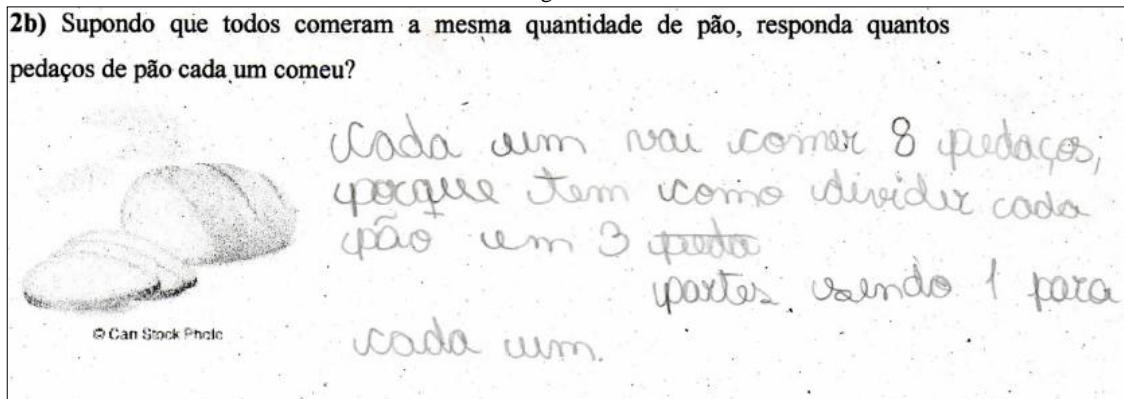 2b) Supondo que todos comeram a mesma quantidade de pão, responda quantos
pedaços de pão cada um comeu?
Cada um vai comer 8 pedaços,
porque tem como dividir cada
pão em 3 peda
partes sendo 1 para
cada um.
© Can Stock Photo